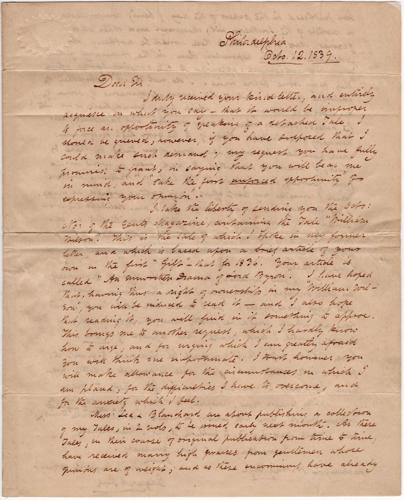 Philadelphia
Octo. 12. 1839.
Dear Sir
I duly received your kind letter, and entirely
acquiesce in what you say — that it would be improper
to force an opportunity of speaking of a detached Tale. I
should be grieved, however, if you have supposed that I
could make such demand; my request you have fully
promised to grant, in saying that you will bear me
in mind, and take the first unforced opportunity of
expressing your opinion.
I take the liberty of sending you the Octo:
No: of the Gents' Magazine, containing the Tale "William
Wilson". This is the tale of which I spoke in my former
letter and which is based upon a brief article of your
own in the first "Gift" — that for 1836. Your article is
called "An unwritten Drama of Lord Byron". I have hoped
that, having thus a right of ownership in my William Wil-
son, you will be induced to read it — and I also hope
that reading it, you will find in it something to approve.
This brings me to another request, which I hardly know
how to urge, and for urging which I am greatly afraid
you will think me importunate. I trust, however, you
will make allowance for the circumstances in which I
am placed, for the difficulties I have to overcome, and
for the anxiety which I feel.
Mess: Lea & Blanchard are about publishing a collection
of my Tales, in 2 vols, to be issued early next month. As these
Tales, in their course of original publication from time to time,
have received many high praises from gentlemen whose
opinions are of weight; and as these encomiums have already